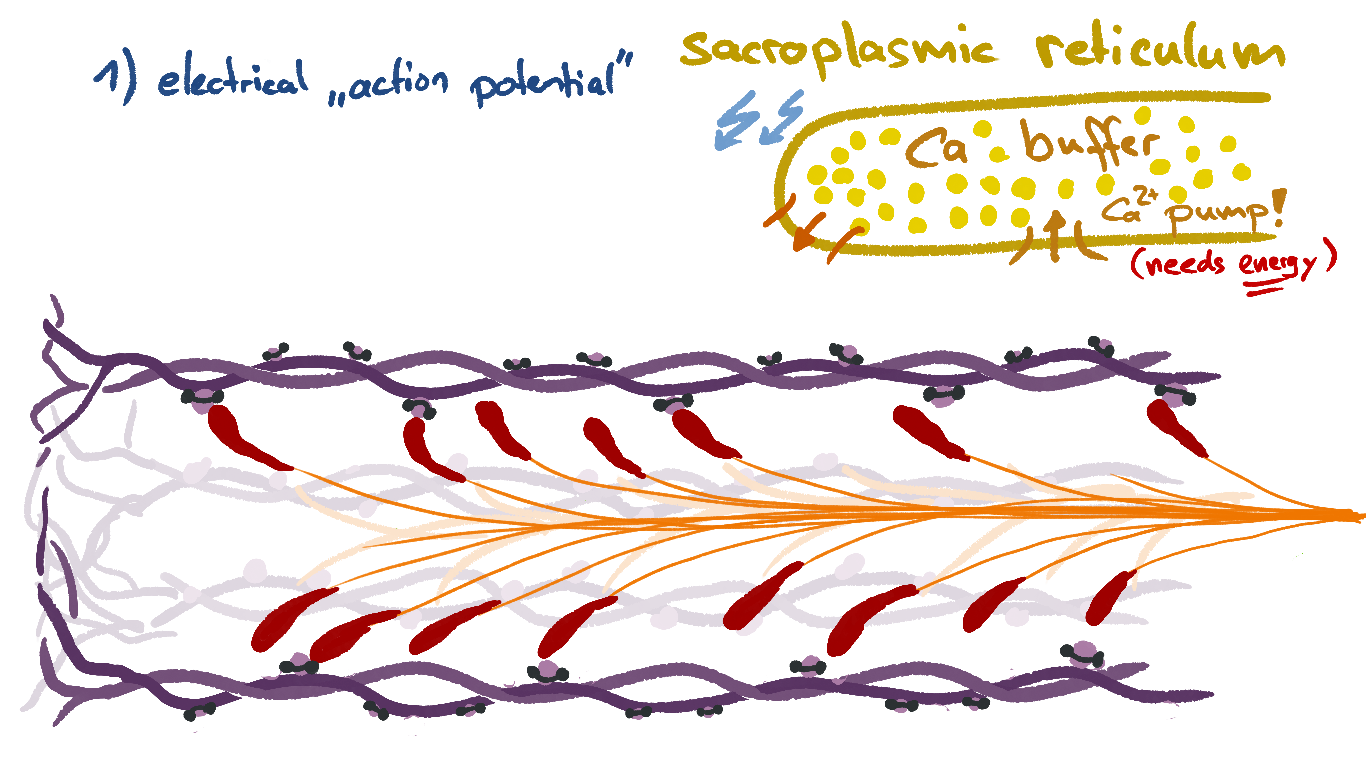 1) electrical „action potential”
sacroplasmic reticulum
Ca buffer
Ca²⁺ pump!
(needs energy)